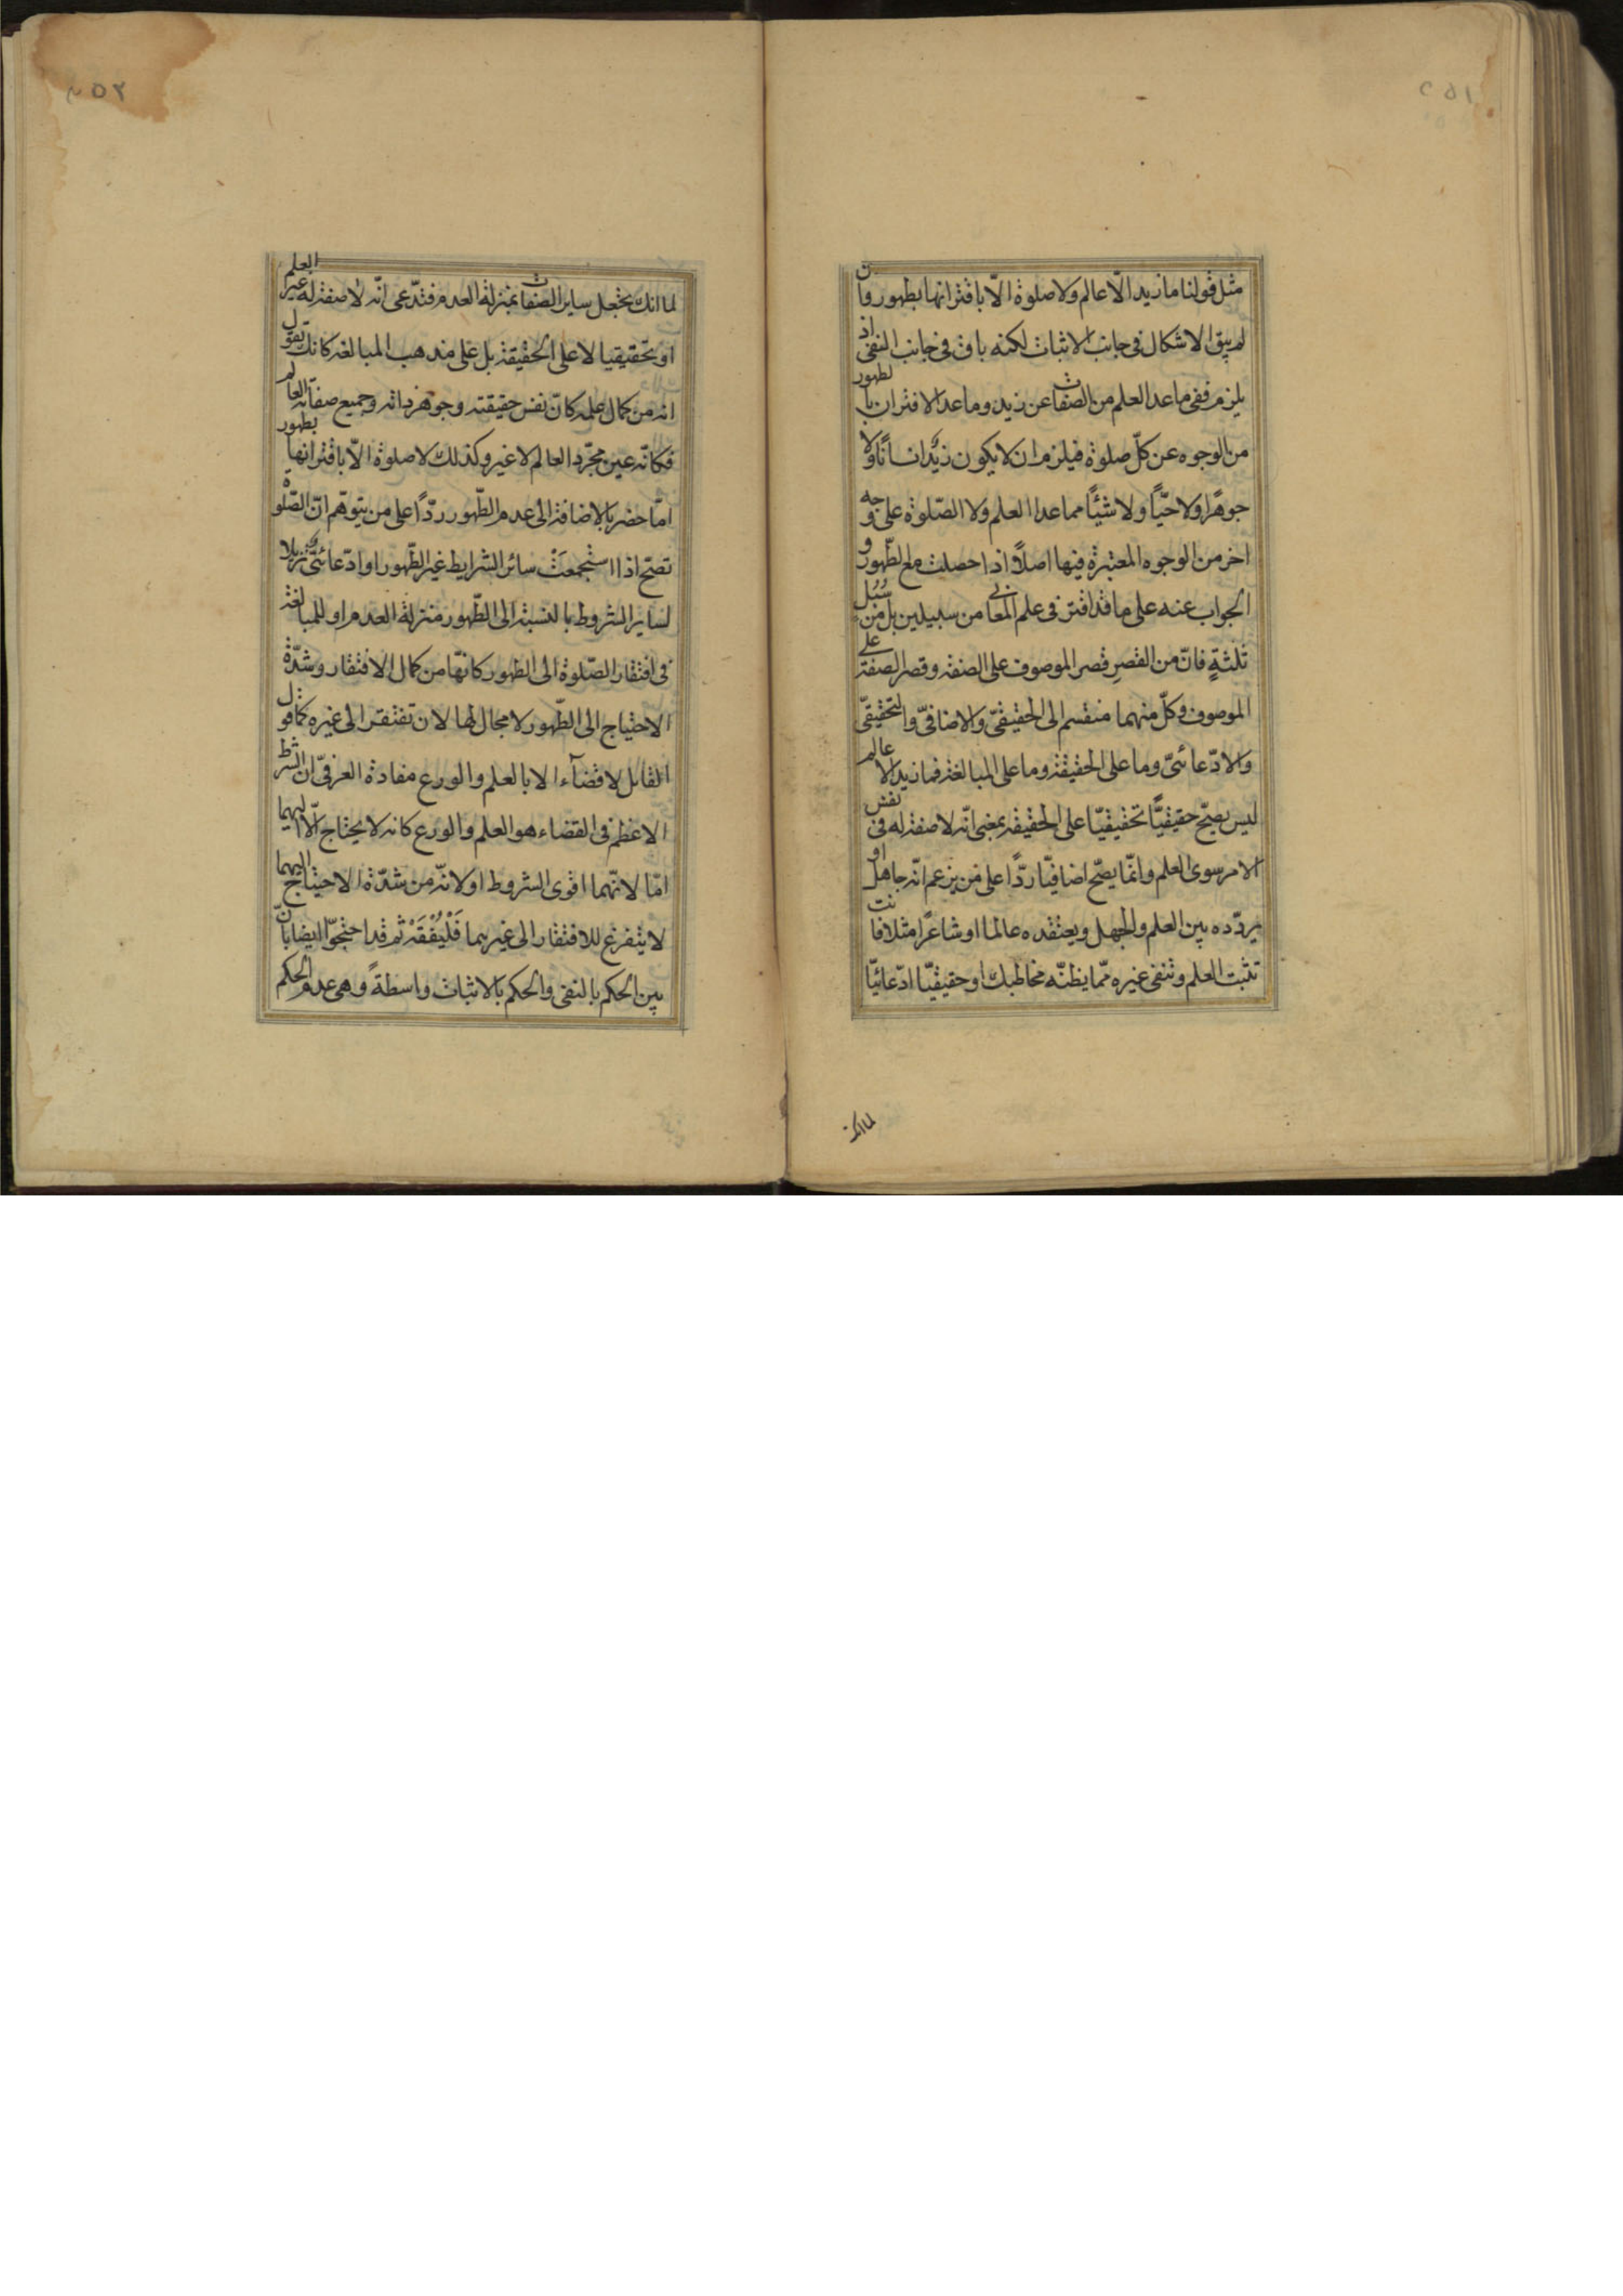 ٢٥١
مثل قولنا ما زيد الّا عالم ولا صلوة الّا باقترانها بطهور وان
لم يبق الاشكال فى جانب الاثبات لكنه باق فى جانب النفى اذ
يلزم نفى ماعدا العلم من الصفات عن زيد وماعدا الاقتران بالطهور
من الوجوه عن كلّ صلوة فيلزم ان لا يكون زيدٌ انسانًا ولا
جوهرًا ولا حيّاً ولا شيئًا مماعدا العلم ولا الصّلوة على وجه
اخر من الوجوه المعتبرة فيها اصلاً اذا حصلت مع الطّهور و
الجواب عنه على ما قد اقترّ فى علم المعانى من سبيلين بل من سُبُل
ثلثةٍ فانّ من القصرِ قصر الموصوف على الصفة وقصر الصفة على
الموصوف وكلّ منهما منقسم الى الحقيقىّ والاضافىّ والتحقيقىّ
والادّعائىّ وما على الحقيقة وما على المبالغة فما زيد الا عالم
ليس يصحّ حقيقيّاً تحقيقيّا على الحقيقة بمعنى انّه لا صفة له فى نفس
الامر سوى العلم وانّما يصحّ اضافيّا ردّاً على من يزعم انّه جاهل او
يردّده بين العلم والجهل ويعتقده عالما او شاعرًا مثلا فانت
تثبت العلم وتنفى غيره ممّا يظنّه مخاطبك او حقيقيّا ادّعائيّا
لما انك
٢٥٢
لما انك تجعل ساير الصفات بمنزلة العدم فتدّعى انّه لا صفة له غير العلم
او تحقيقيا لا على الحقيقة بل على مذهب المبالغة كانك تقول
انه من كمال علمه كانّ نفس حقيقته وجوهر ذاته وجميع صفاته العالم
فكانّه عين مجرّد العالم لا غير وكذلك لا صلوة الّا باقترانها بطهور
امّا حضر بالاضافة الى عدم الطّهور ردّاً على من يتوهّم انّ الصّلوة
تصحّ اذا استجمعَتْ سائر الشرايط غير الطّهور او ادّعائىّ تنزيلا
لساير الشروط بالنسبة الى الطّهور منزلة العدم او للمبالغة
فى افتقار الصّلوة الى الطهور كانّها من كمال الافتقار وشدّة
الاحتياج الى الطّهور لا مجال لها لان تفتقر الى غيره كما قول
القايل لا قضآء الا بالعلم والورع مفادة العرفىّ ان الشرط
الاعظم فى القضاء هو العلم والورع كانه لا يحتاج الّا اليهما
امّا لانّهما اقوى الشروط او لانّه من شدّة الاحتياج اليهما
لا يتفرغ للافتقار الى غيرهما فَلْيُفْقَهْ ثم قد احتجّوا ايضا بانّ
بين الحكم بالنفى والحكم بالاثبات واسطةً وهى عدم الحكم